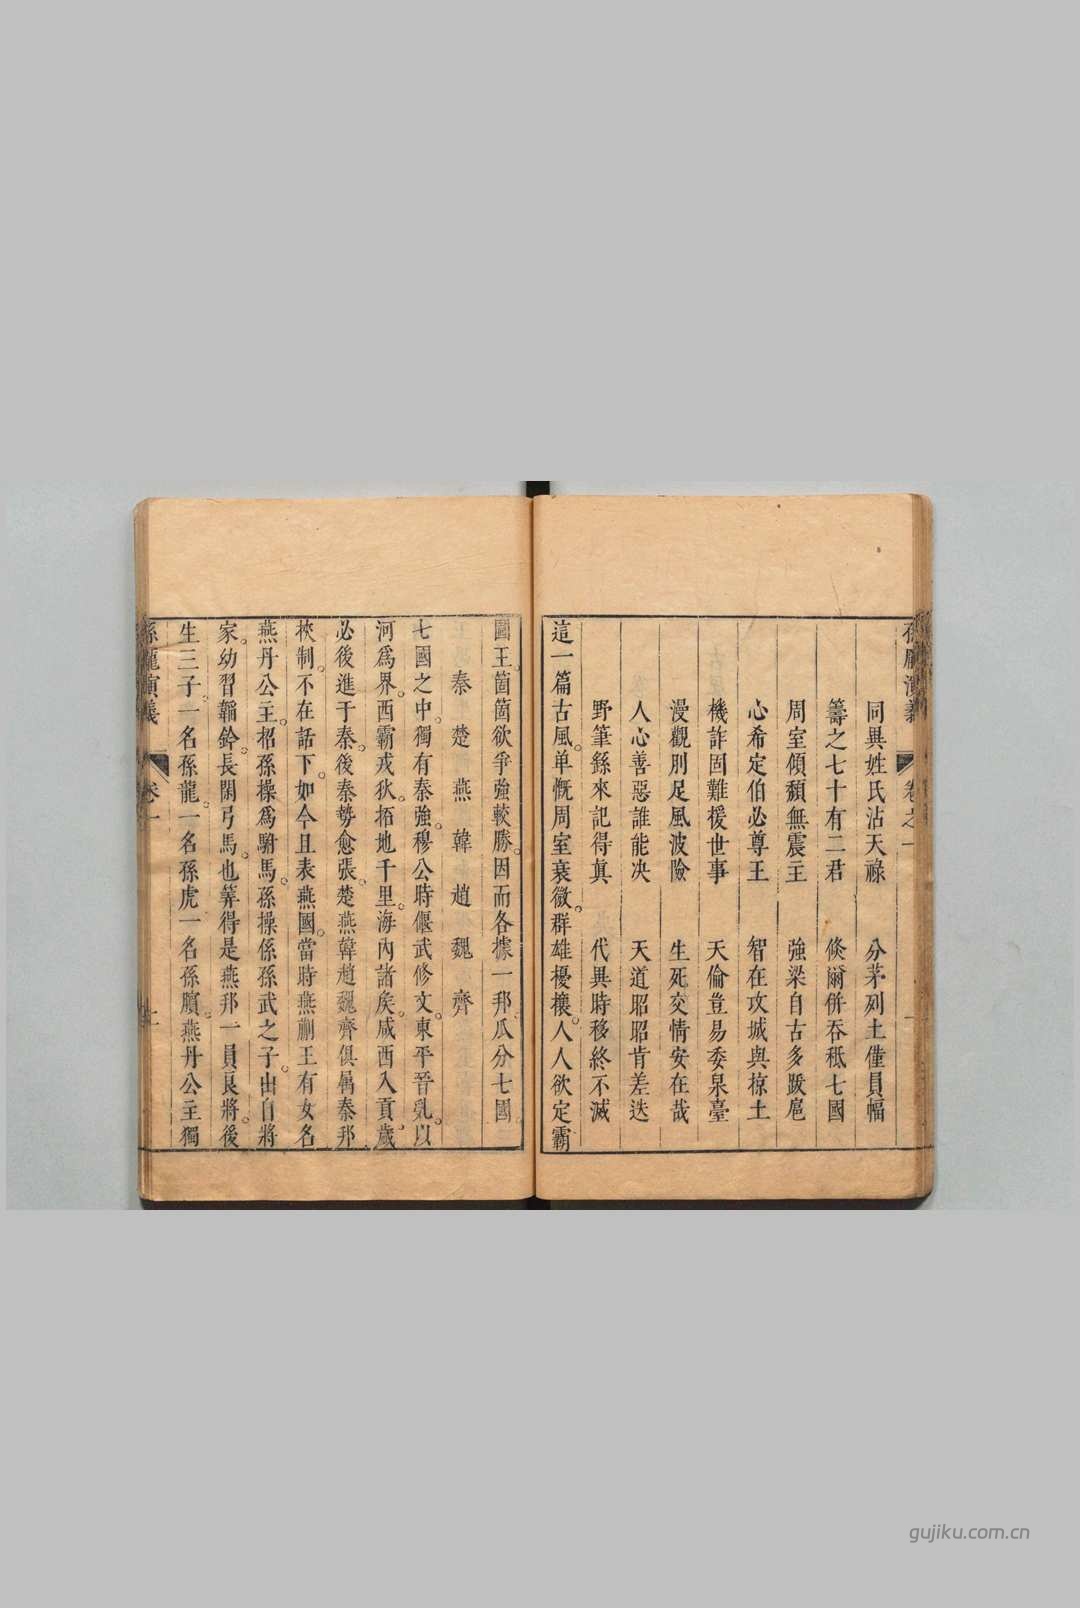 卷之一
同異姓氏沾天祿　分茅列土僅員幅
籌之七十有二君　倐爾併吞秪七國
周室傾頽無震主　強梁自古多跋扈
心希定伯必尊王　智在攻城與掠土
機詐固難援世事　天倫豈易委泉臺
漫觀則足風波險　生死交情安在哉
人心善惡誰能决　天道昭昭肯差迭
野筆繇來記得眞　代異時移終不滅
這一篇古風。单慨周室衰微。群雄擾攘。人人欲定霸
國王。箇箇欲爭強較勝。因而各據一邦。瓜分七國。
秦　楚　燕　韓　趙　魏　齊
七國之中。獨有秦強。穆公時偃武修文。東平晉乱。以
河爲界。西霸戎狄。拓地千里。海內諸矦。咸西入貢。歲
必後進于秦。後秦勢愈張。楚燕韓趙魏齊俱属秦邦
挾制。不在話下。如今且表燕國。當時燕王有女名
燕丹公主。招孫操爲駙馬。孫操係孫武之子。出自將
家。幼習韜鈐。長閑弓馬。也筭得是燕邦一員良將。後
生三子。一名孫龍。一名孫虎一名孫臏。燕丹公主獨
孫龐演義　卷一　二
gujiku.com.cn